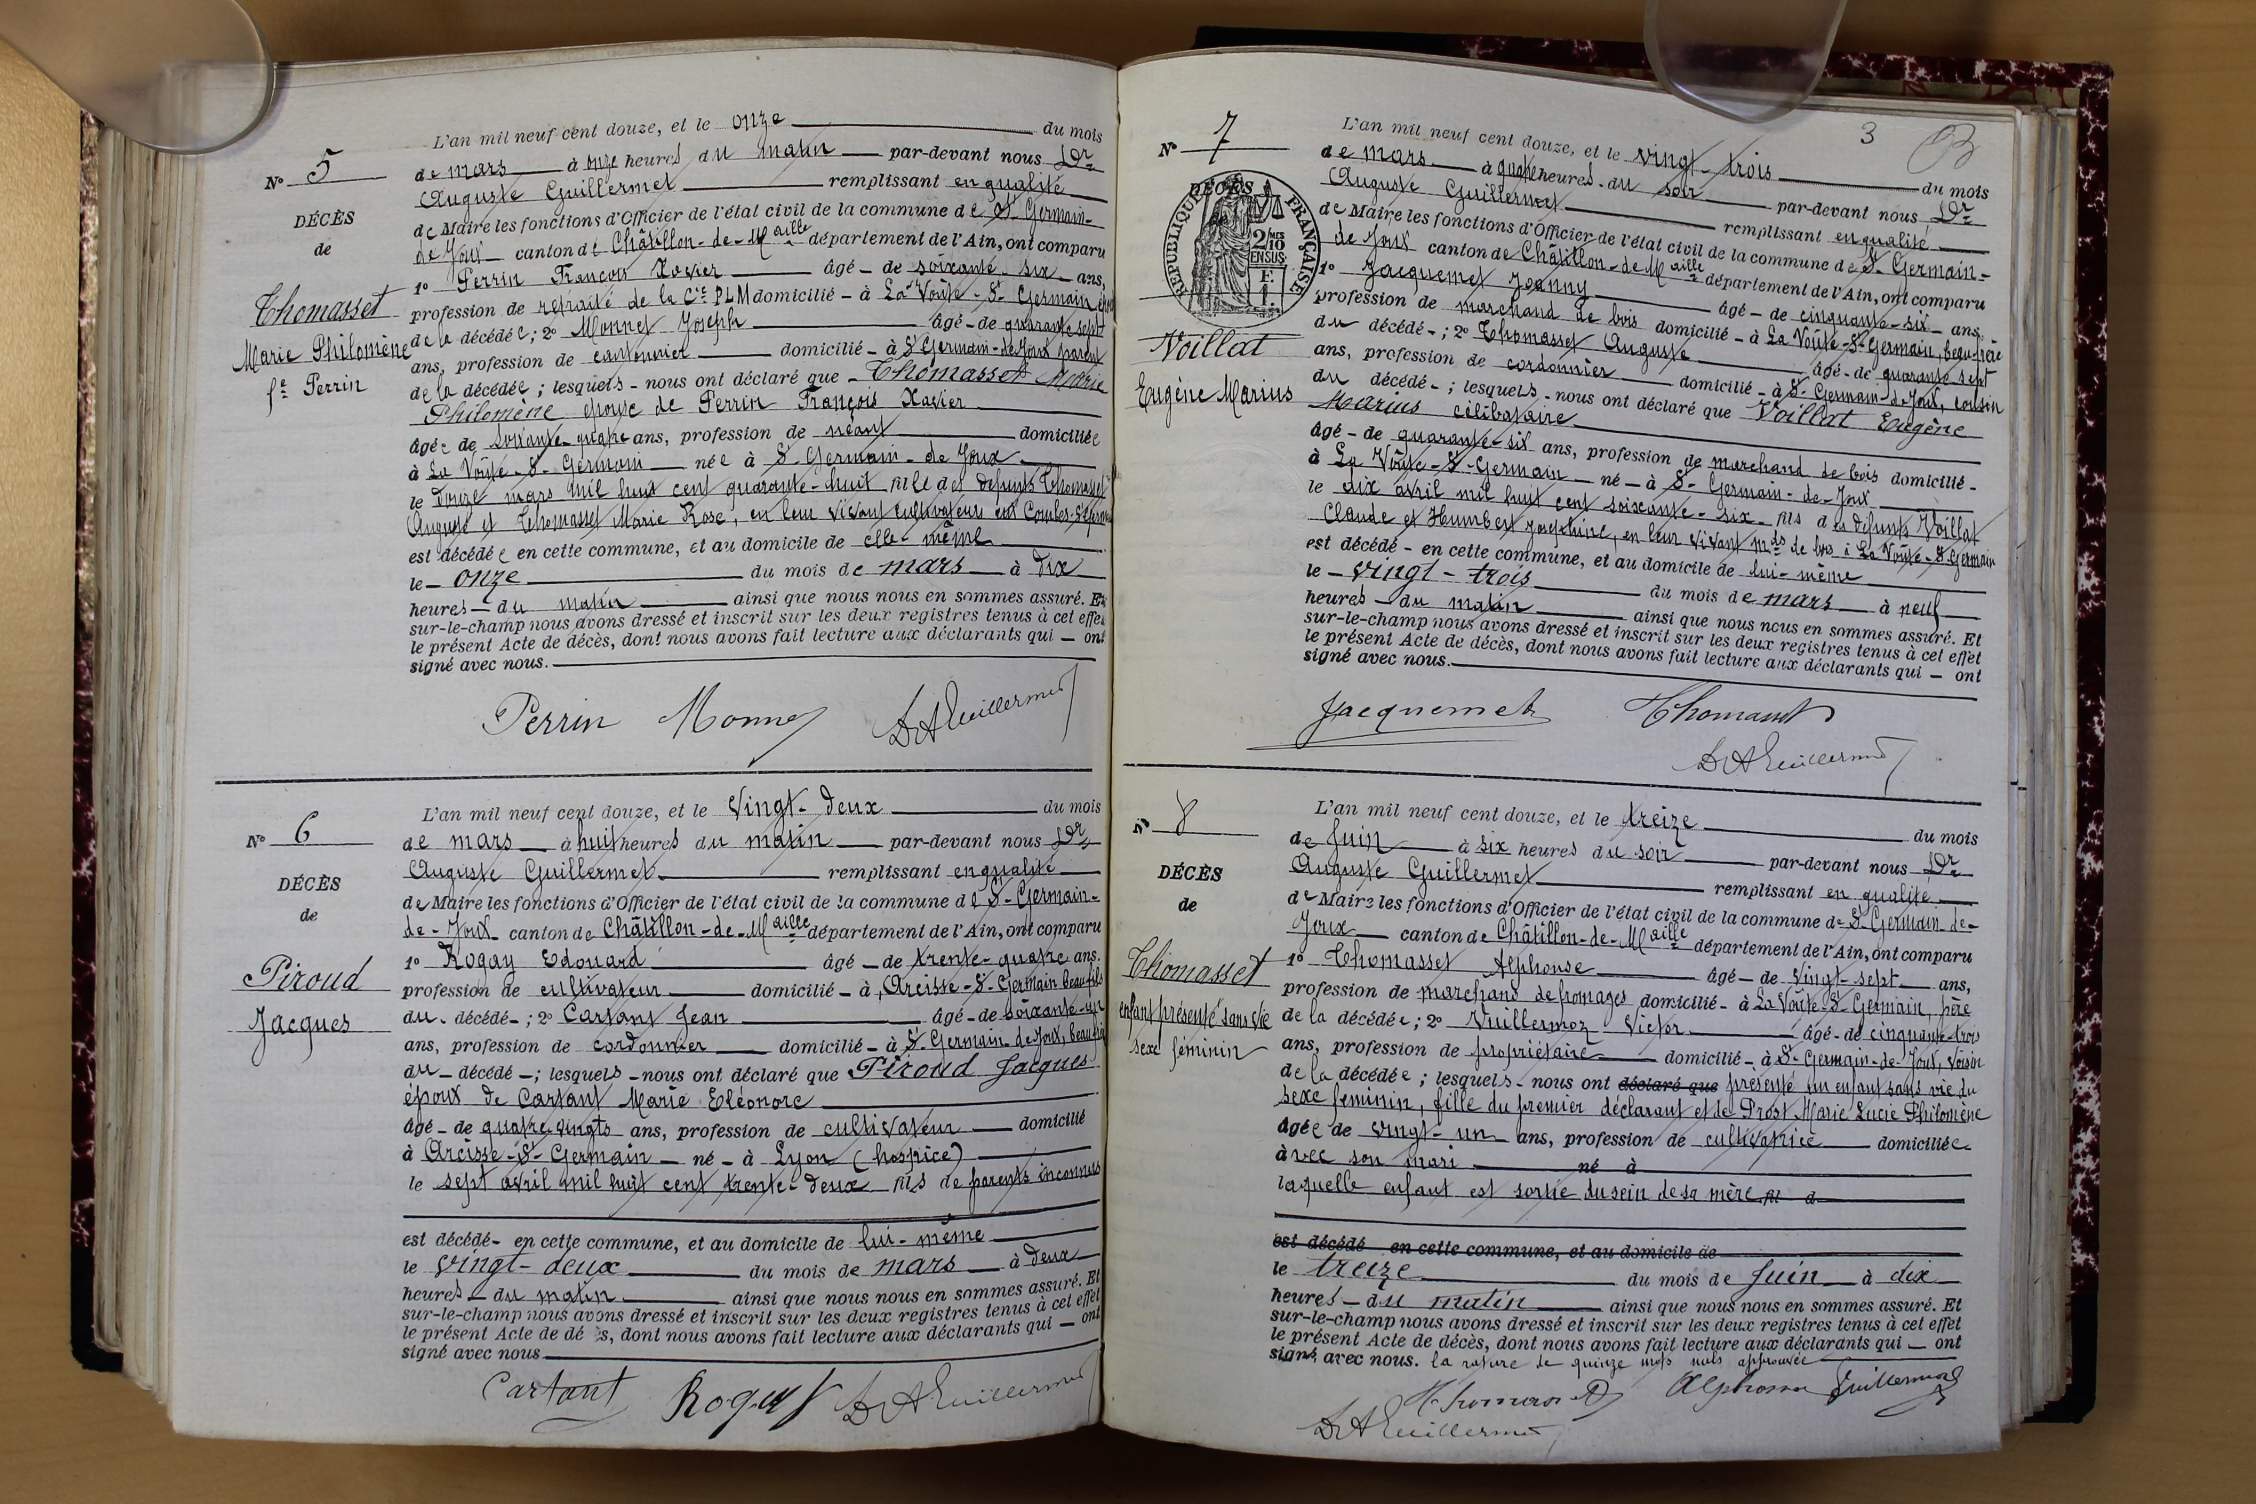 L'an mil neuf cent douze, et le onze du mois
N° 5
de mars à onze heures du matin par-devant nous Dr
Auguste Guillermet remplissant en qualité
DÉCÈS
de Maire les fonctions d'Officier de l'état civil de la commune de St Germain-
de
de Joux canton de Châtillon-de-Maille département de l'Ain, ont comparu
1° Perrin François Xavier âgé de soixante-six ans,
Thomasset
profession de retraité de la Cie PLM domicilié à La Voûte-St Germain époux
Marie Philomène
de la décédée; 2° Monnet Joseph âgé de quarante sept
fe Perrin
ans, profession de cantonnier domicilié à St Germain-de-Joux parent
de la décédée; lesquels nous ont déclaré que Thomasset Marie
Philomène épouse de Perrin François Xavier
âgée de soixante-quatre ans, profession de néant domiciliée
à La Voûte-St-Germain née à St Germain-de-Joux
le douze mars mil huit cent quarante-huit fille des défunts Thomasset
Auguste et Thomasset Marie Rose, en leur vivant cultivateurs aux Combes-St Germain
est décédée en cette commune, et au domicile de elle-même
le onze du mois de mars à dix
heures du matin ainsi que nous nous en sommes assuré. Et
sur-le-champ nous avons dressé et inscrit sur les deux registres tenus à cet effet
le présent Acte de décès, dont nous avons fait lecture aux déclarants qui ont
signé avec nous.
Perrin Monnet Dr A Guillermet
L'an mil neuf cent douze, et le vingt-deux du mois
N° 6
de mars à huit heures du matin par-devant nous Dr
Auguste Guillermet remplissant en qualité
DÉCÈS
de Maire les fonctions d'Officier de l'état civil de la commune de St-Germain-
de
de-Joux canton de Châtillon-de-Maille département de l'Ain, ont comparu
1° Rogay Edouard âgé de trente-quatre ans.
Piroud
profession de cultivateur domicilié à Arcisse-St-Germain beau fils
Jacques
du décédé; 2° Cartant Jean âgé de soixante-un
ans, profession de cordonnier domicilié à St-Germain de Joux, beau frère
du décédé; lesquels nous ont déclaré que Piroud Jacques
époux de Cartant Marie Eléonore
âgé de quatre vingts ans, profession de cultivateur domicilié
à Arcisse-St-Germain né à Lyon (hospice)
le sept avril mil huit cent trente-deux fils de parents inconnus
est décédé en cette commune, et au domicile de lui-même
le vingt-deux du mois de mars à deux
heures du matin ainsi que nous nous en sommes assuré. Et
sur-le-champ nous avons dressé et inscrit sur les deux registres tenus à cet effet
le présent Acte de décès, dont nous avons fait lecture aux déclarants qui ont
signé avec nous
Cartant Rogay Dr A Guillermet
3
L'an mil neuf cent douze, et le vingt-trois du mois
N° 7
de mars à quatre heures du soir par-devant nous Dr
Auguste Guillermet remplissant en qualité
DÉCÈS
RÉPUBLIQUE FRANÇAISE
2/10 EN SUS
de Maire les fonctions d'Officier de l'état civil de la commune de St-Germain-
de Joux canton de Châtillon-de-Maille département de l'Ain, ont comparu
1° Jacquemet Joanny âgé de cinquante-six ans,
profession de marchand de bois domicilié à La Voûte-St-Germain, beau-frère
Voillat
du décédé; 2° Thomasset Auguste âgé de quarante sept
Eugène Marius
ans, profession de cordonnier domicilié à St-Germain-de-Joux, cousin
du décédé; lesquels nous ont déclaré que Voillat Eugène
Marius célibataire
âgé de quarante-six ans, profession de marchand de bois domicilié
à La Voûte-St-Germain né à St-Germain-de-Joux
le dix avril mil huit cent soixante-six fils des défunts Voillat
Claude et Humbert Joséphine, en leur vivant mds de bois à La Voûte-St-Germain
est décédé en cette commune, et au domicile de lui-même
le vingt-trois du mois de mars à neuf
heures du matin ainsi que nous nous en sommes assuré. Et
sur-le-champ nous avons dressé et inscrit sur les deux registres tenus à cet effet
le présent Acte de décès, dont nous avons fait lecture aux déclarants qui ont
signé avec nous.
Jacquemet Thomasset
Dr A Guillermet
L'an mil neuf cent douze, et le treize du mois
N° 8
de Juin à six heures du soir par-devant nous Dr
Auguste Guillermet remplissant en qualité
DÉCÈS
de Maire les fonctions d'Officier de l'état civil de la commune de St-Germain-de-
de
Joux canton de Châtillon-de-Maille département de l'Ain, ont comparu
1° Thomasset Alphonse âgé de vingt-sept ans,
Thomasset
profession de marchand de fromages domicilié à La Voûte-St-Germain, père
enfant présenté sans vie
de la décédée; 2° Vuillermoz Victor âgé de cinquante-trois
sexe féminin
ans, profession de propriétaire domicilié à St-Germain-de-Joux, voisin
de la décédée; lesquels nous ont déclaré que présenté un enfant sans vie du
sexe féminin, fille du premier déclarant et de Prost Marie Lucie Philomène
âgée de vingt-un ans, profession de cultivatrice domiciliée
avec son mari né à
laquelle enfant est sortie du sein de sa mère fil d
est décédé en cette commune, et au domicile de
le treize du mois de Juin à dix
heures du matin ainsi que nous nous en sommes assuré. Et
sur-le-champ nous avons dressé et inscrit sur les deux registres tenus à cet effet
le présent Acte de décès, dont nous avons fait lecture aux déclarants qui ont
signé avec nous. la rature de quinze mots nuls approuvée
Thomasset Alphonse Vuillermoz
Dr A Guillermet